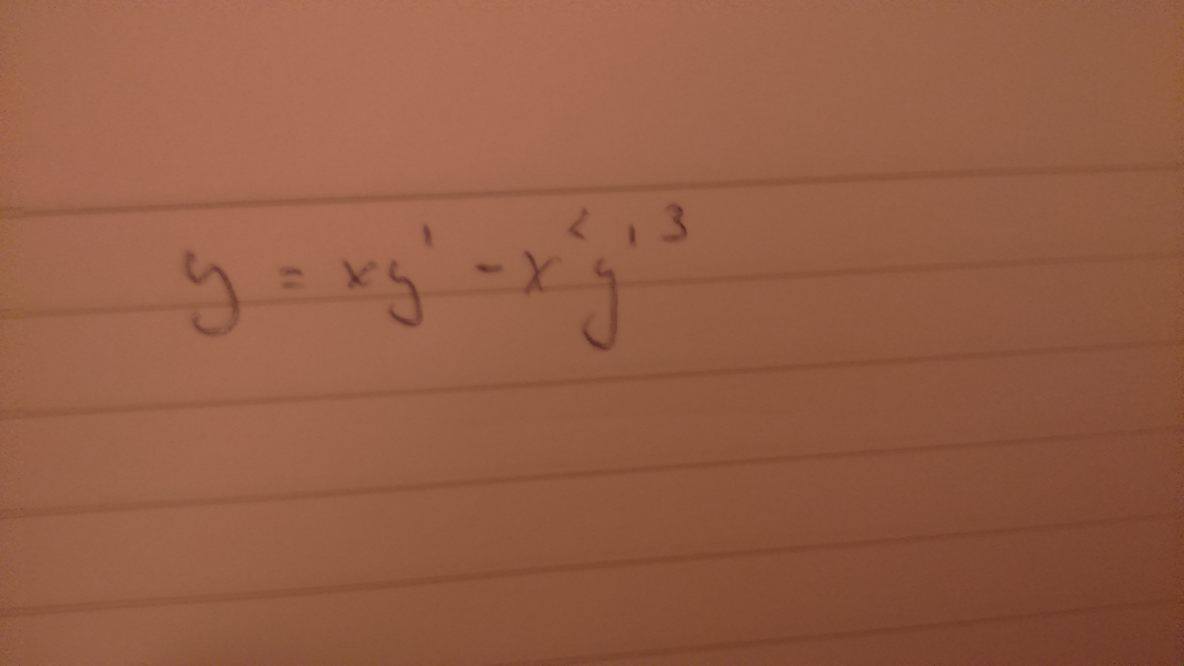 y = xy' - x²y'³